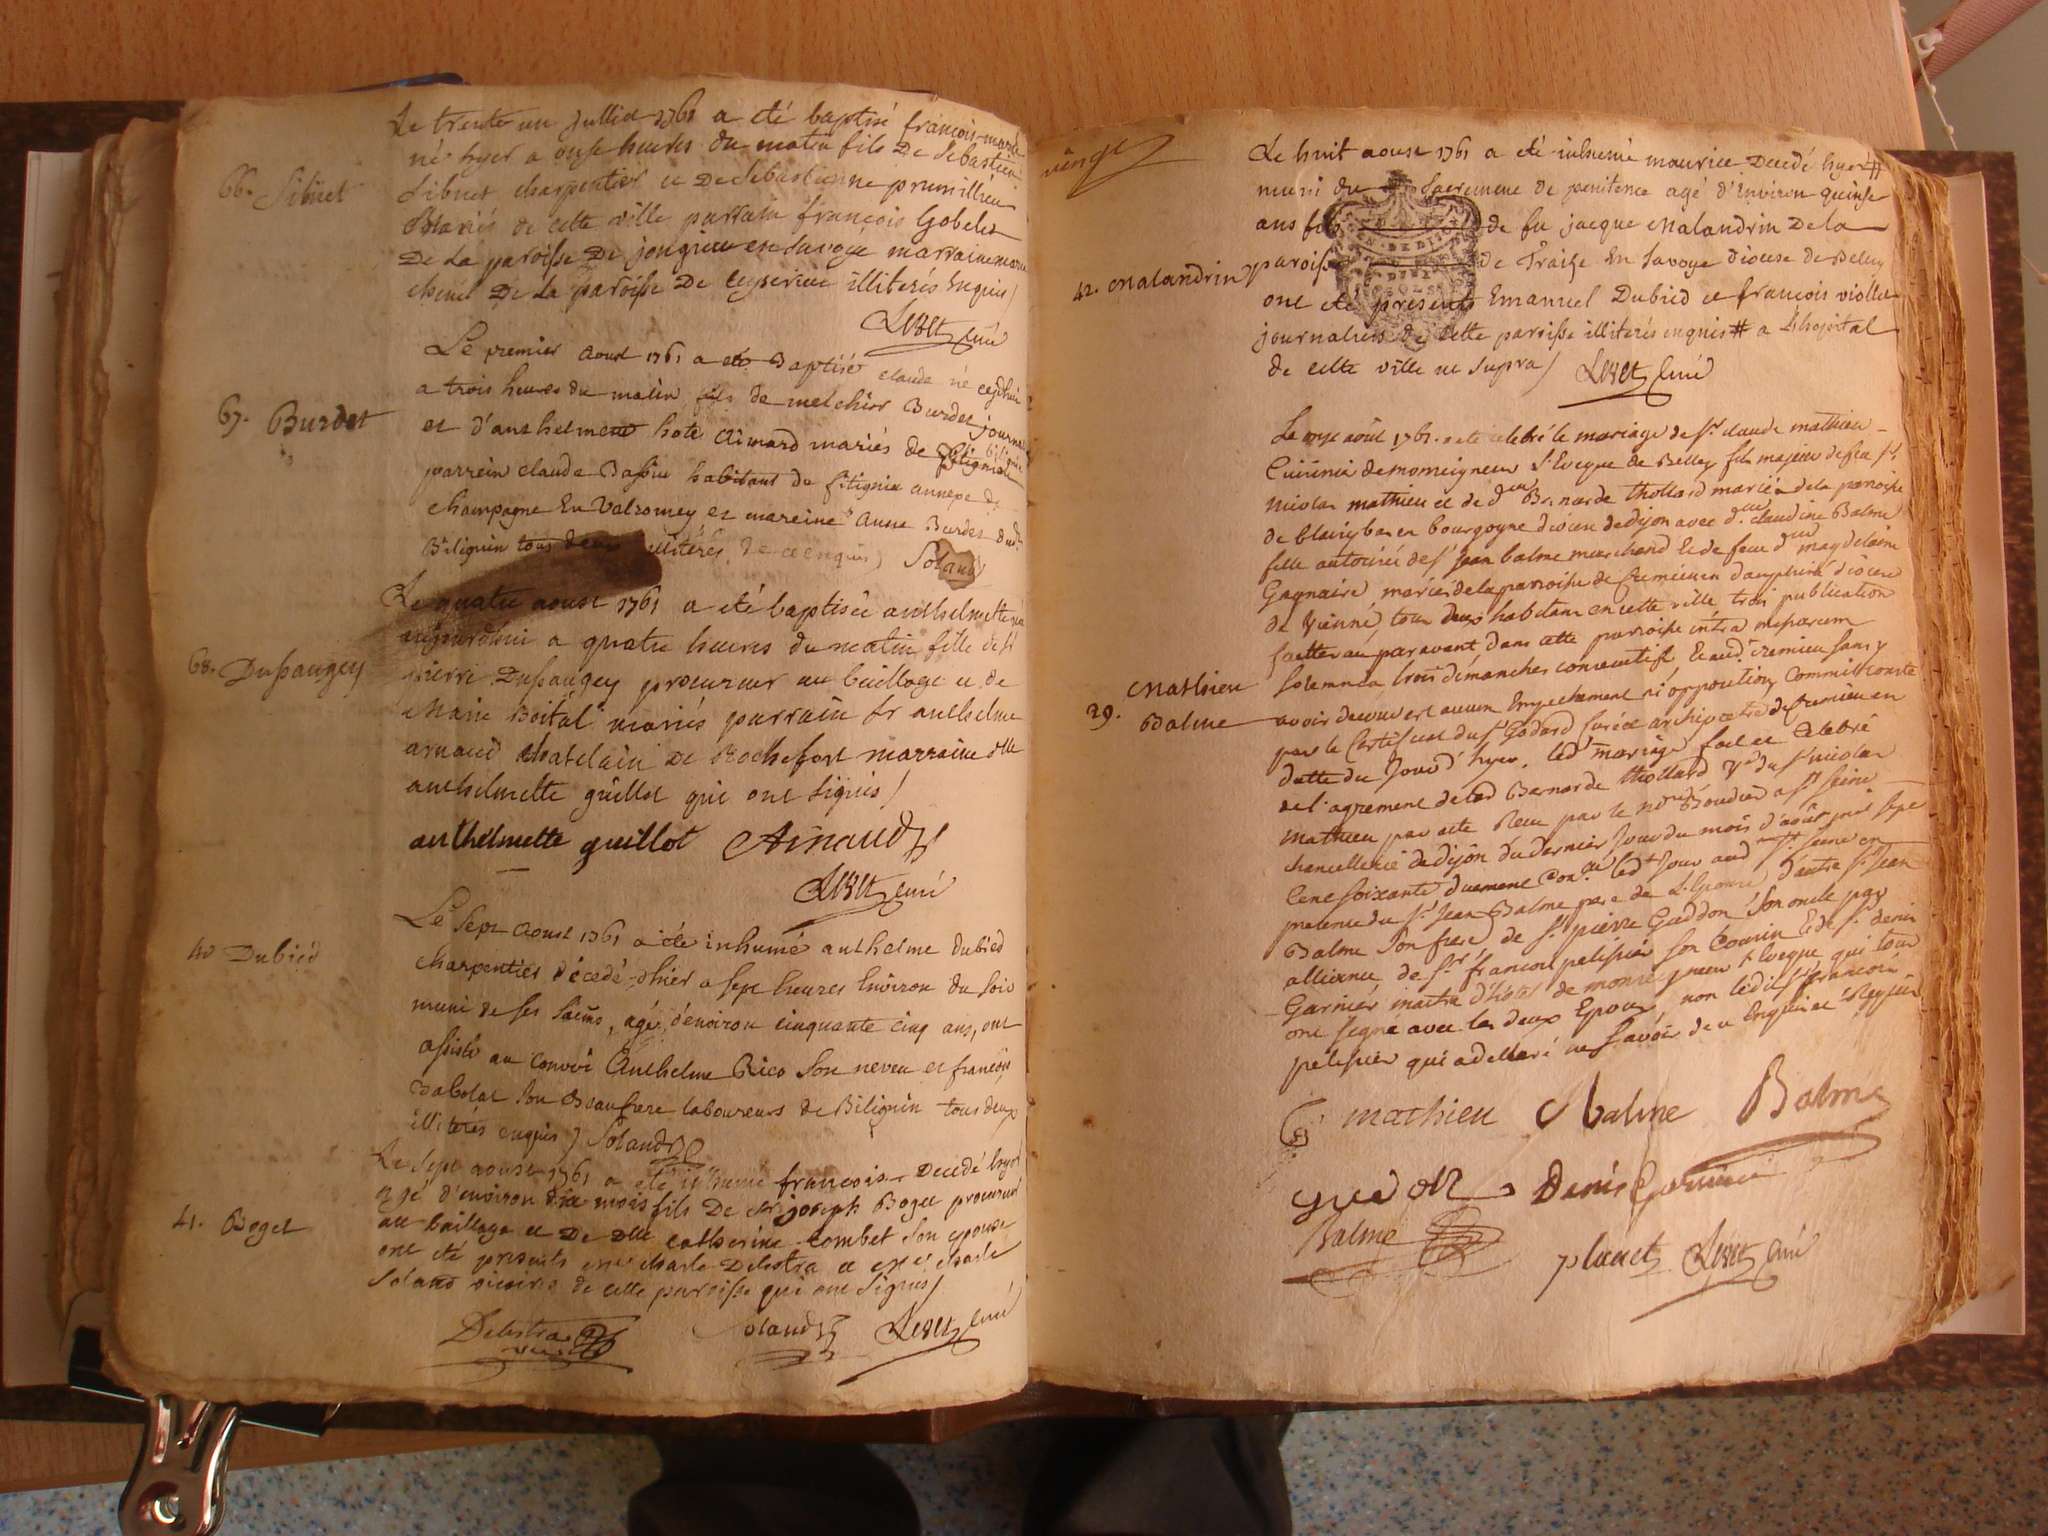 66. Sibuet
Le trente un Juillet 1761 a été baptisé françois-marie
né hyer a onse heures du matin fils De Sebastien
Sibuet charpentier et De Sebastienne prumillieu
Mariés de cette ville parrain françois Gobelet
De La paroisse De jongieux en Savoye marraine marie
De La paroisse De ceyserieu illiterés Enquis /
Levet curé
67. Burdet
Le premier Aoust 1761 a eté Baptisé claude né cejdhui
a trois heures du matin fils de melchior Burdet journa
et d'anthelmette hote Aimard mariés de Bilignin
parrein claude Bassin habitant de fitignieu annexe de
champagne En Valromey et mareine anne Burdet dud.
Bilignin tous deux illitérés de ce enquis) Soland
68. Dussaugey
Le quatre aoust 1761 a eté baptisée anthelmette née
aujourdhui a quatre heures du matin fille de sr
pierre Dussaugey procureur au bailliage et de
Marie Boital mariés parrain sr anthelme
arnaud chatelain De Rochefort marraine dlle
anthelmette guillot qui ont signés /
anthelmette guillot Arnaud
Levet curé
40 Dubied
Le Sept Aoust 1761 a éte inhumé anthelme Dubied
charpentier décedé dhier a sept heures Environ du soir
muni de ses Sacmts, agé d'environ cinquante cinq ans, ont
assisté au convoi Anthelme Rico son neveu et françois
Dabolat son Beaufrere laboureurs de Bilignin tous deux
illiterés enquis) Soland
41. Boget
Le sept aoust 1761 a eté inhumé françois Decedé hyer
agé d'environ dix mois fils De Sr joseph Boget procureur
au bailliage et De Dlle catherine Combet son epouse
ont eté presents mre charle Delestra et mre charle
Soland vicaires de cette paroisse qui ont signés /
Delestra vicaire Soland Levet curé
vingt
42. Malandrin
Le huit aoust 1761 a eté inhumé maurice Decedé hyer #
muni du Sacrement de penitence agé d'environ quinse
ans fils de fu jacque Malandrin De la
paroisse de Traise En Savoye diocese de Belley
ont eté présents Emanuel Dubied et francois viollet
journaliers de cette paroisse illiterés enquis # a L'hopital
de cette ville ut supra / Levet curé
29. Mathieu
Balme
Le onze août 1761. a eté celebré le mariage de sr. claude mathieu
Cuisinier de monseigneur L'Eveque de Belley fils majeur de feu sr.
Nicolas mathieu et de dlle Bernarde thollard mariés de la paroisse
de blaisy bas en bourgogne diocese de dijon avec dlle. claudine Balme
fille autorisée de sr jean balme marchand et de feue dlle magdelaine
Gagnaire mariés de la parroisse de Cremieu en dauphiné diocese
de Vienne, tous deux habitans en cette ville, trois publication
faittes au paravant dans cette parroisse intra missarum
solemnia trois dimanches consecutifs Et aud. Cremieu sans y
avoir decouvert aucun Empechement ni opposition, Comme il conste
par le Certificat du sr Godard Curé et archipretre de Cremieu en
datte du Jour d'hyer. led mariage fait et Celebré
de l'agrement de lad Bernarde thollard Ve du sr nicolas
mathieu par acte Reçu par le Nore Boudier a st seine
chancellerie de dijon du dernier Jour du mois d'août mil sept
Cent soixante duement Conlé led Jour aud st. seine en
presence du sr Jean Balme pere de L'Epouse, d'autre sr Jean
Balme son frere, de sr pierre Gueddon son oncle par
alliance, de sr. francois pelissier son Cousin Et de sr. denis
Garnier maitre d'hotel de monseigneur L'eveque qui tous
ont signé avec les deux Epoux, non ledit sr francois
pelissier qui a declaré ne savoir de ce Enquis et Requis
mathieu Balme Balme
guedon Denis Garnier
Balme planet Levet curé